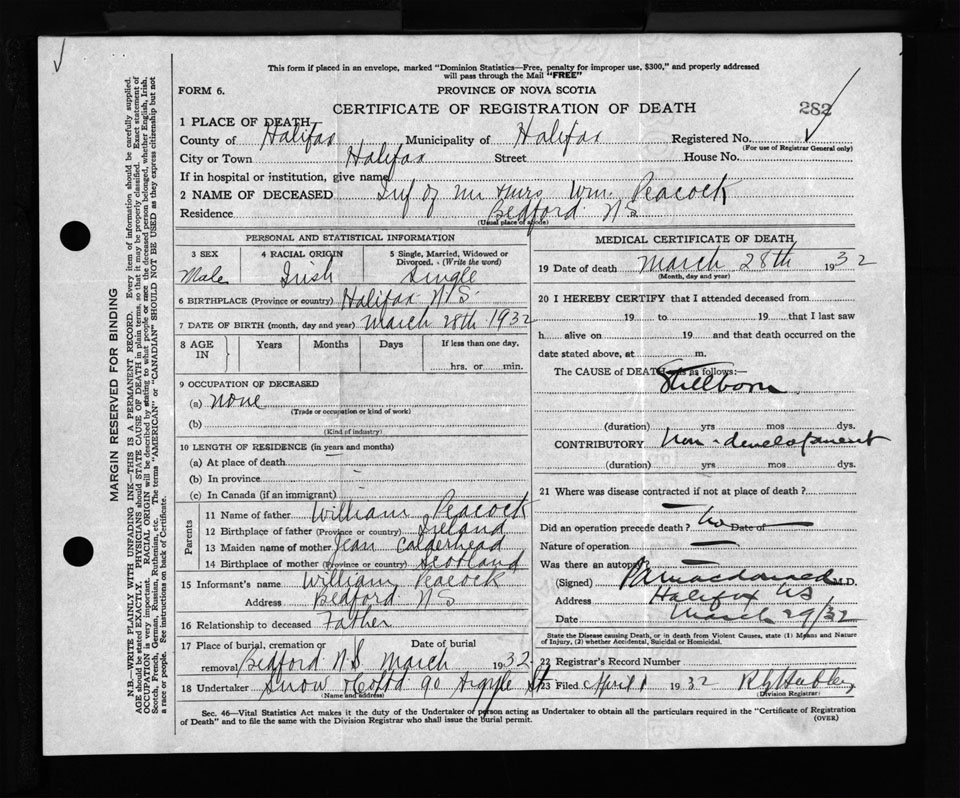 This form if placed in an envelope, marked "Dominion Statistics—Free, penalty for improper use, $300," and properly addressed
will pass through the Mail "FREE"
FORM 6.
PROVINCE OF NOVA SCOTIA
CERTIFICATE OF REGISTRATION OF DEATH
282
1 PLACE OF DEATH
County of Halifax Municipality of Halifax Registered No.
(For use of Registrar General only)
City or Town Halifax Street House No.
If in hospital or institution, give name
2 NAME OF DECEASED Inf of Mr & Mrs. Wm. Peacock
Residence Bedford N S
(Usual place of abode)
PERSONAL AND STATISTICAL INFORMATION
3 SEX 4 RACIAL ORIGIN 5 Single, Married, Widowed or
Divorced. (Write the word)
Male Irish Single
6 BIRTHPLACE (Province or country) Halifax N.S.
7 DATE OF BIRTH (month, day and year) March 28th 1932
8 AGE IN Years Months Days If less than one day.
hrs. or min.
9 OCCUPATION OF DECEASED
(a) none
(Trade or occupation or kind of work)
(b)
(Kind of industry)
10 LENGTH OF RESIDENCE (in years and months)
(a) At place of death
(b) In province
(c) In Canada (if an immigrant)
Parents
11 Name of father William Peacock
12 Birthplace of father (Province or country) Ireland
13 Maiden name of mother Jean Calderhead
14 Birthplace of mother (Province or country) Scotland
15 Informant's name William Peacock
Address Bedford N S
16 Relationship to deceased Father
17 Place of burial, cremation or Date of burial
removal Bedford N.S. March 1932
18 Undertaker Snow & Co Ltd 90 Argyle St
(Name and address)
MEDICAL CERTIFICATE OF DEATH
19 Date of death March 28th 1932
(Month, day and year)
20 I HEREBY CERTIFY that I attended deceased from
19 to 19 that I last saw
h alive on 19 and that death occurred on the
date stated above, at m.
The CAUSE of DEATH was as follows:—
Stillborn
(duration) yrs mos dys.
CONTRIBUTORY Non-development
(duration) yrs mos dys.
21 Where was disease contracted if not at place of death?
Did an operation precede death? No Date of
Nature of operation
Was there an autopsy
(Signed) Macdonald M.D.
Address Halifax NS
Date March 29/32
State the Disease causing Death, or in death from Violent Causes, state (1) Means and Nature
of Injury, (2) whether Accidental, Suicidal or Homicidal.
22 Registrar's Record Number
23 Filed April 1 1932
(Division Registrar)
Sec. 46—Vital Statistics Act makes it the duty of the Undertaker or person acting as Undertaker to obtain all the particulars required in the "Certificate of Registration
of Death" and to file the same with the Division Registrar who shall issue the burial permit.
(OVER)
MARGIN RESERVED FOR BINDING
N.B.—WRITE PLAINLY WITH UNFADING INK—THIS IS A PERMANENT RECORD. Every item of information should be carefully supplied.
AGE should be stated EXACTLY. PHYSICIANS should STATE CAUSE OF DEATH in plain terms, so that it may be properly classified. Exact statement of
OCCUPATION is very important. RACIAL ORIGIN will be described by stating to what people or race the deceased person belonged, whether English, Irish,
Scotch, French, German, Russian, Ruthenian, etc. The terms "AMERICAN" or "CANADIAN" SHOULD NOT BE USED as they express citizenship but not
a race or people. See instructions on back of Certificate.